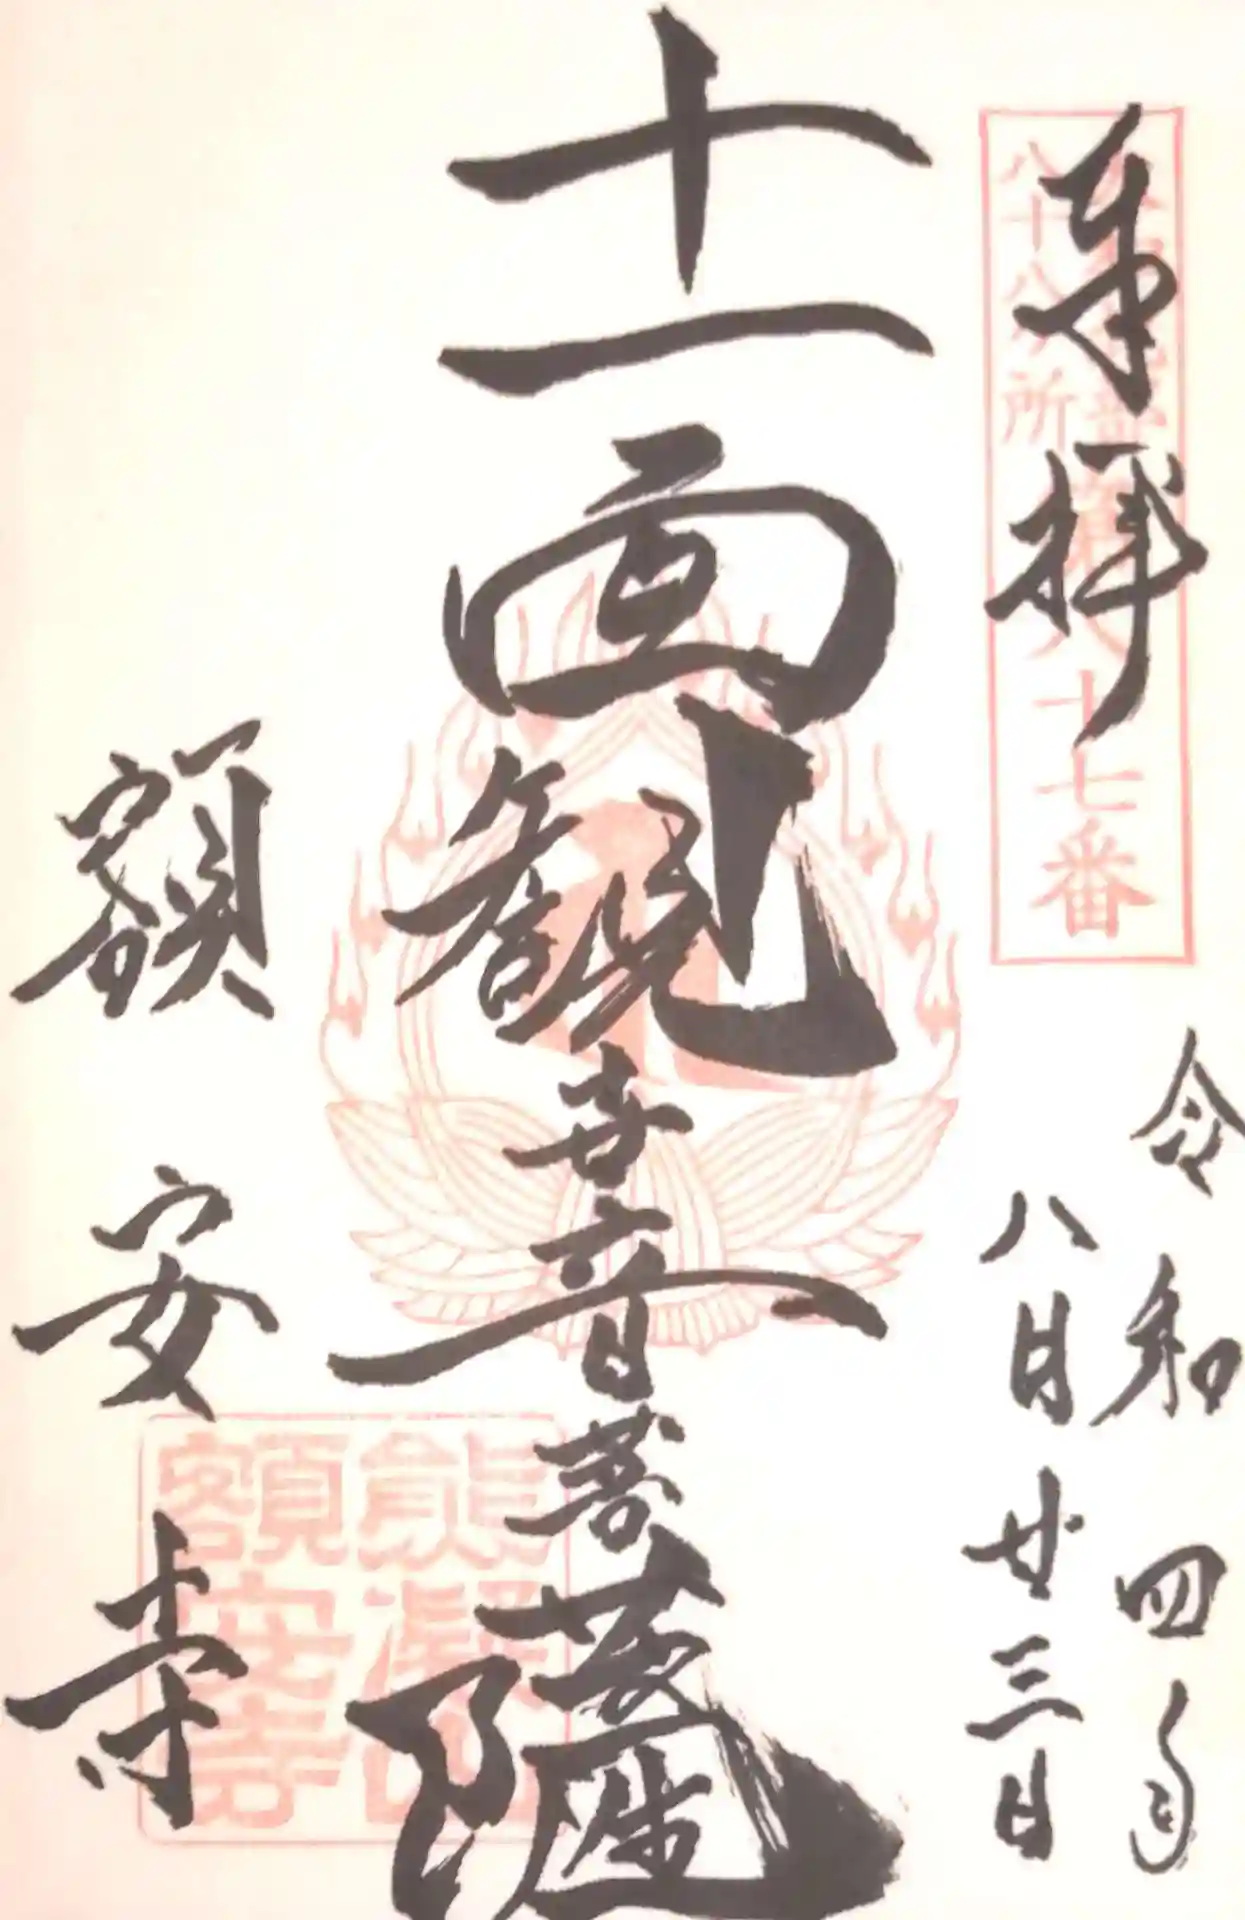 奉拝
八十八ヶ所
十七番
令和四年
八月廿三日
十一面観世音菩薩
熊凝山
額安寺
額安寺